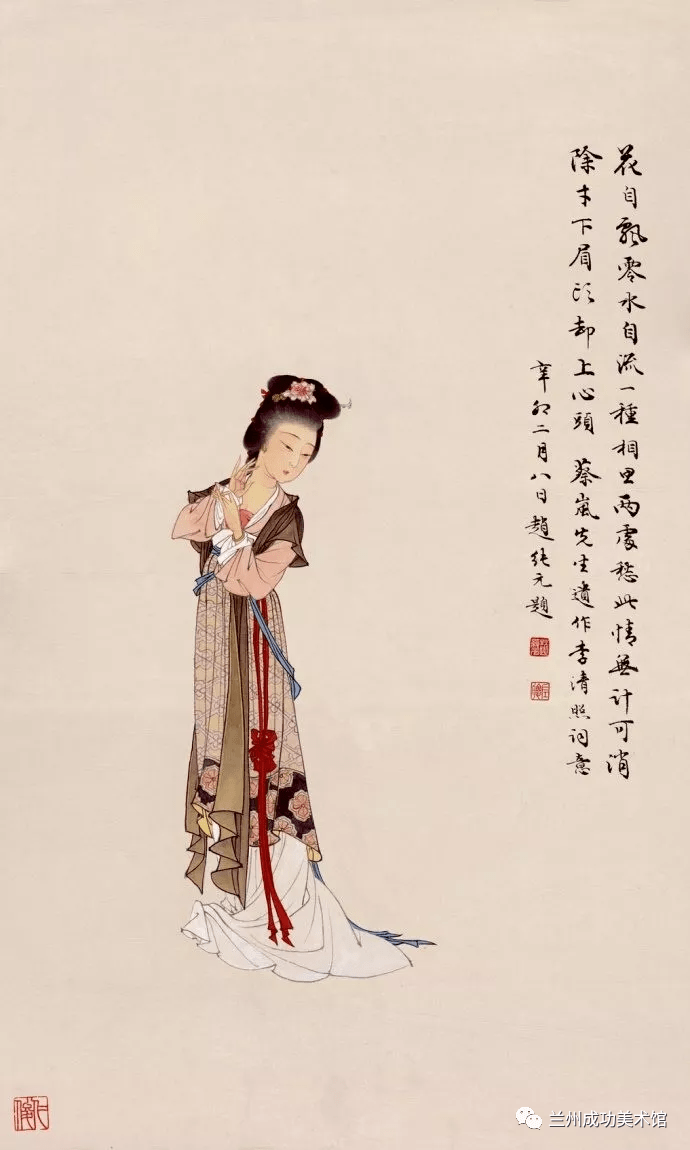 花自飘零水自流一種相思两處愁此情無计可消
除才下眉头却上心頭 蔡嵐先生遺作李清照词意
辛卯二月八日趙纯元題
兰州成功美术馆